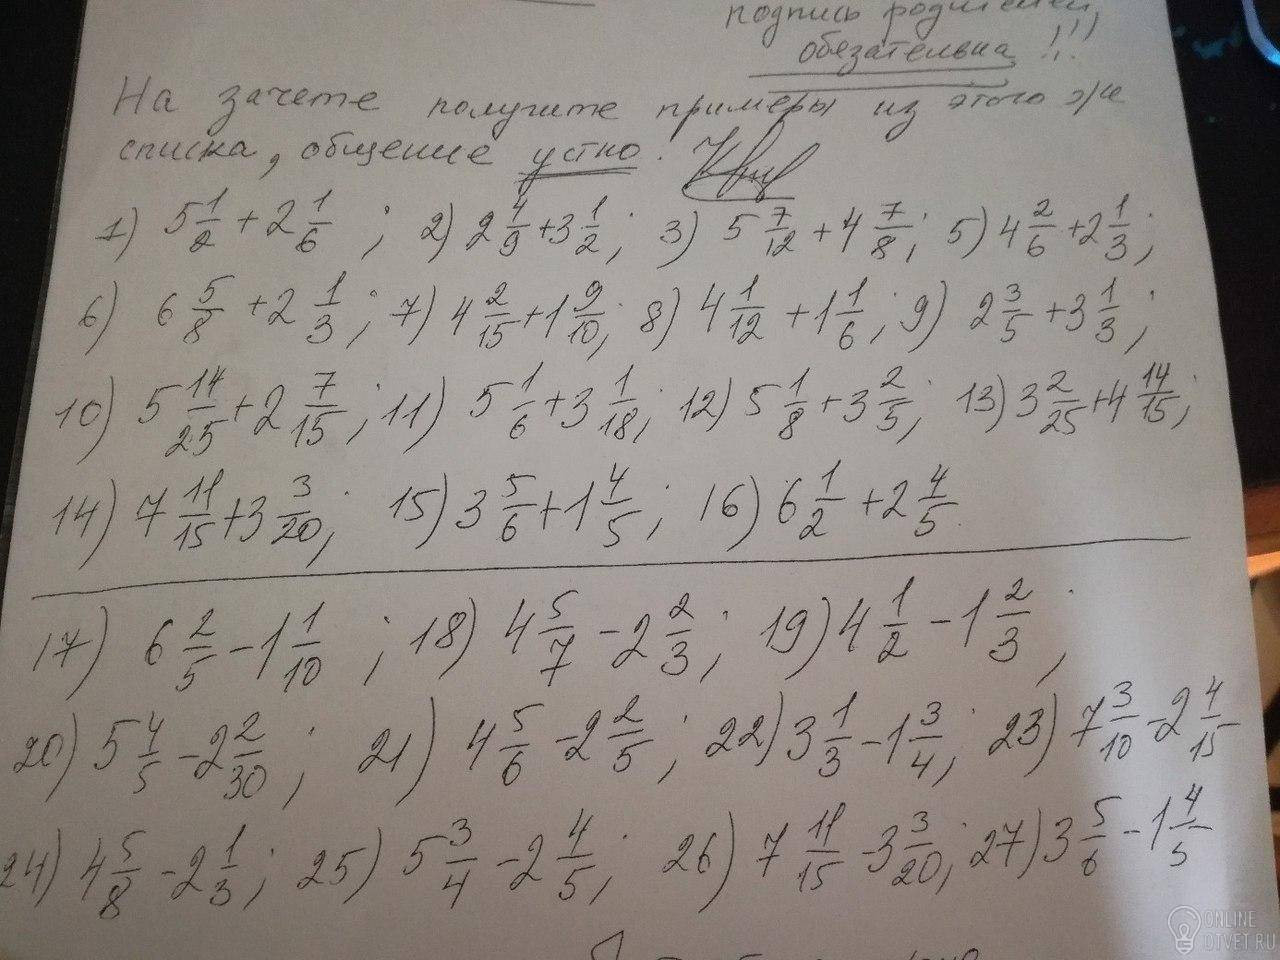 подпись родителей
обязательна !!!
На зачете получите примеры из этого же
списка, общение устно.
1) 5 1/2 + 2 1/6 ; 2) 2 4/9 + 3 1/2 ; 3) 5 7/12 + 4 7/8 ; 5) 4 2/6 + 2 1/3 ;
6) 6 5/8 + 2 1/3 ; 7) 4 2/15 + 1 9/10 ; 8) 4 1/12 + 1 1/6 ; 9) 2 3/5 + 3 1/3 ;
10) 5 14/25 + 2 7/15 ; 11) 5 1/6 + 3 1/18 ; 12) 5 1/8 + 3 2/5 ; 13) 3 2/25 + 4 14/15 ;
14) 7 11/15 + 3 3/20 ; 15) 3 5/6 + 1 4/5 ; 16) 6 1/2 + 2 4/5 .
17) 6 2/5 - 1 1/10 ; 18) 4 5/7 - 2 2/3 ; 19) 4 1/2 - 1 2/3 ;
20) 5 4/5 - 2 2/30 ; 21) 4 5/6 - 2 2/5 ; 22) 3 1/3 - 1 3/4 ; 23) 7 3/10 - 2 4/15
24) 4 5/8 - 2 1/3 ; 25) 5 3/4 - 2 4/5 ; 26) 7 11/15 - 3 3/20 ; 27) 3 5/6 - 1 4/5
ONLINE
OTVET.RU